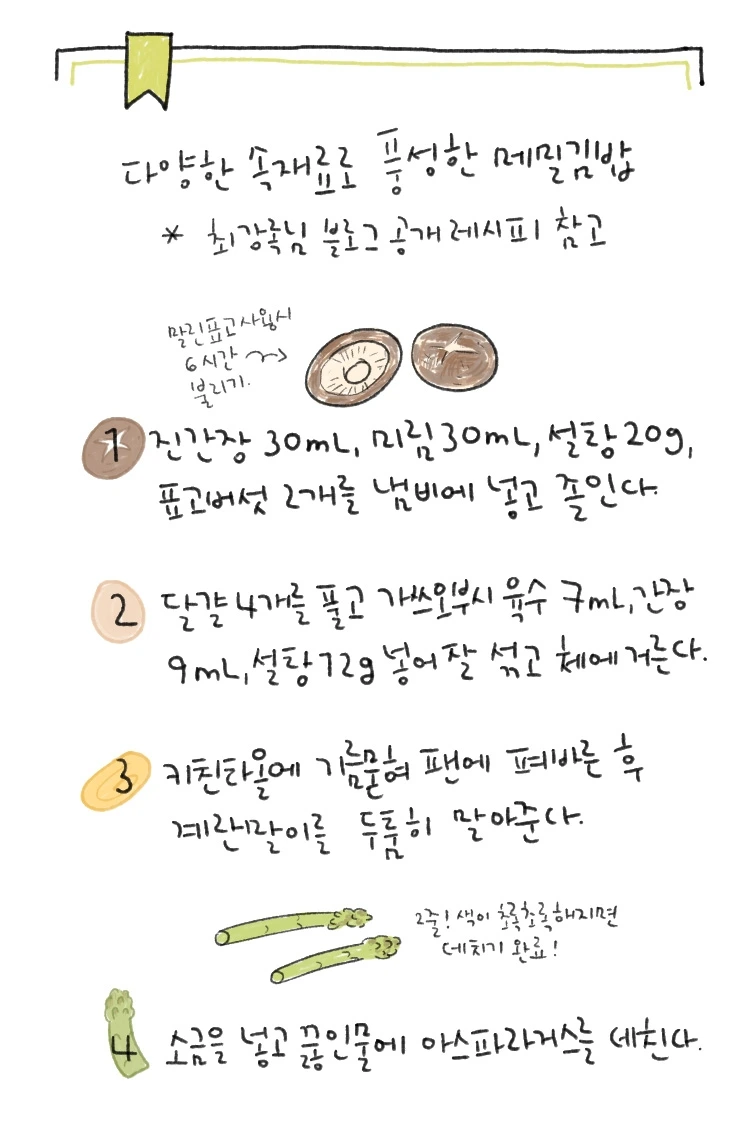 다양한 속재료로 풍성한 메밀김밥
* 최강록님 블로그 공개 레시피 참고
말린표고사용시
6시간
불리기.
1 진간장 30mL, 미림30mL, 설탕20g,
표고버섯 2개를 냄비에 넣고 졸인다.
2 달걀 4개를 풀고 가쓰오부시 육수 7mL, 간장
9mL, 설탕12g 넣어 잘 섞고 체에 거른다.
3 키친타올에 기름묻혀 팬에 펴바른 후
계란말이를 두툼히 말아준다.
2줄! 색이 초록초록해지면
데치기 완료!
4 소금을 넣고 끓인물에 아스파라거스를 데친다.